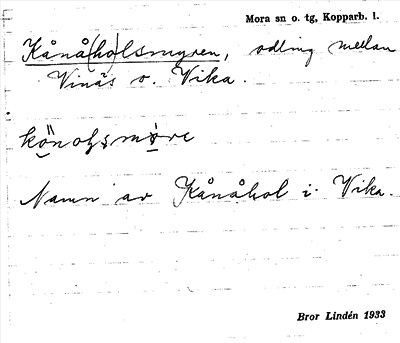 Mora sn o. tg, Kopparb. l.
Kånå(ho)lsmyren, odling mellan
Vinäs o. Vika.
Namn av Kånåhol i Vika.
Bror Lindén 1933